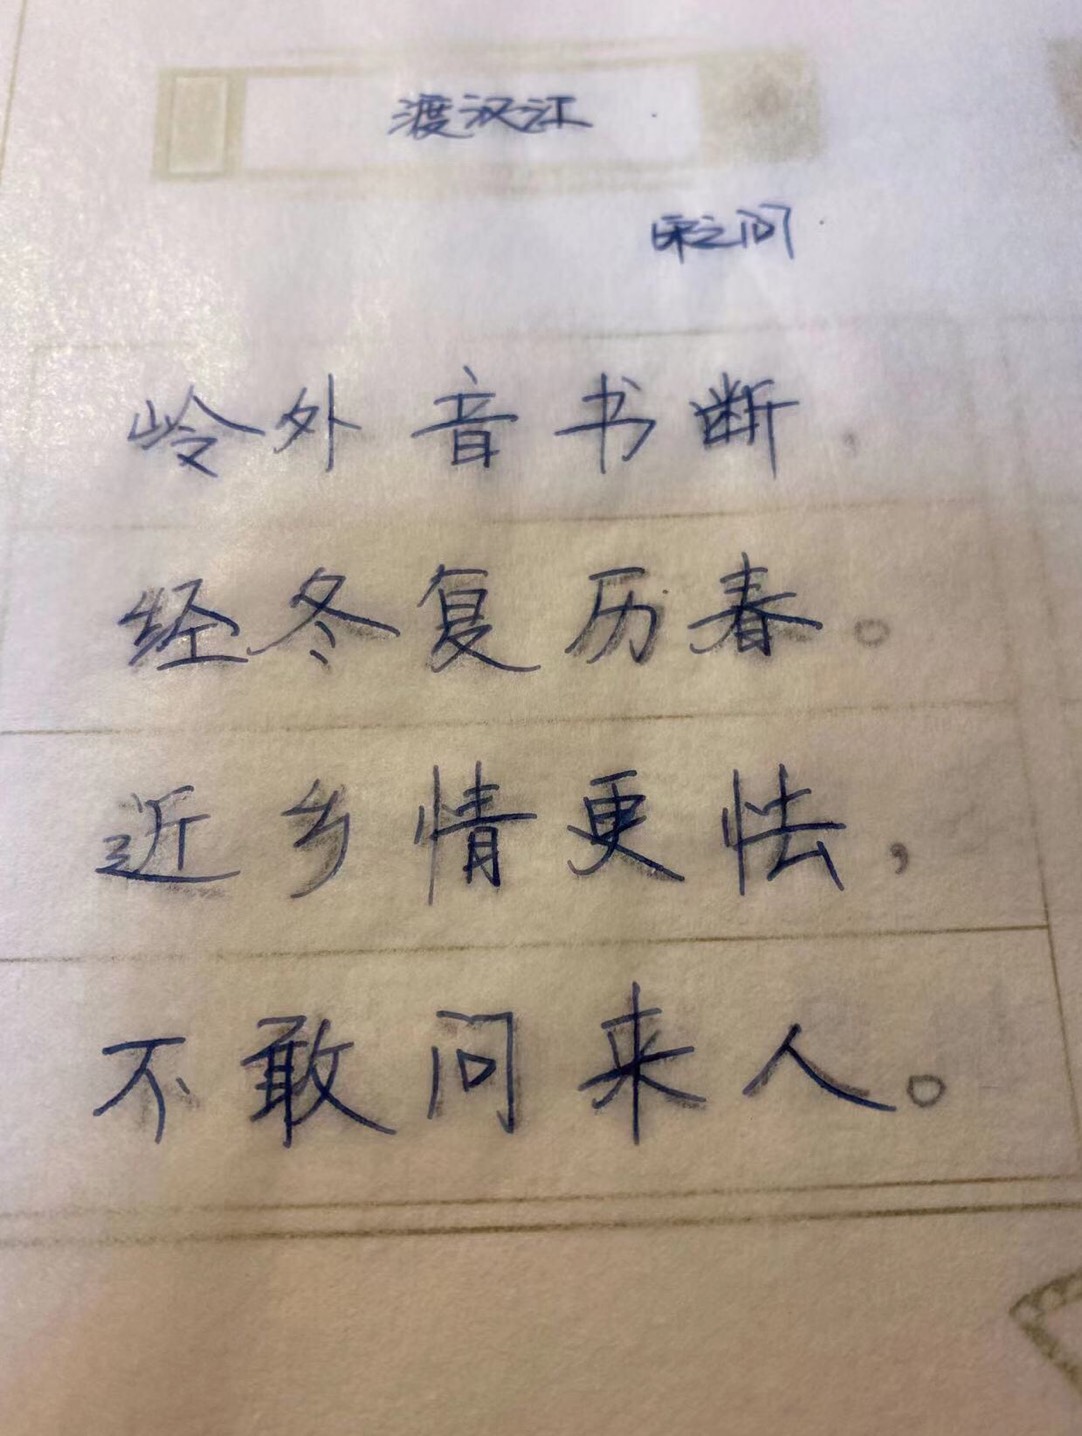 渡汉江
宋之问
岭外音书断，
经冬复历春。
近乡情更怯，
不敢问来人。